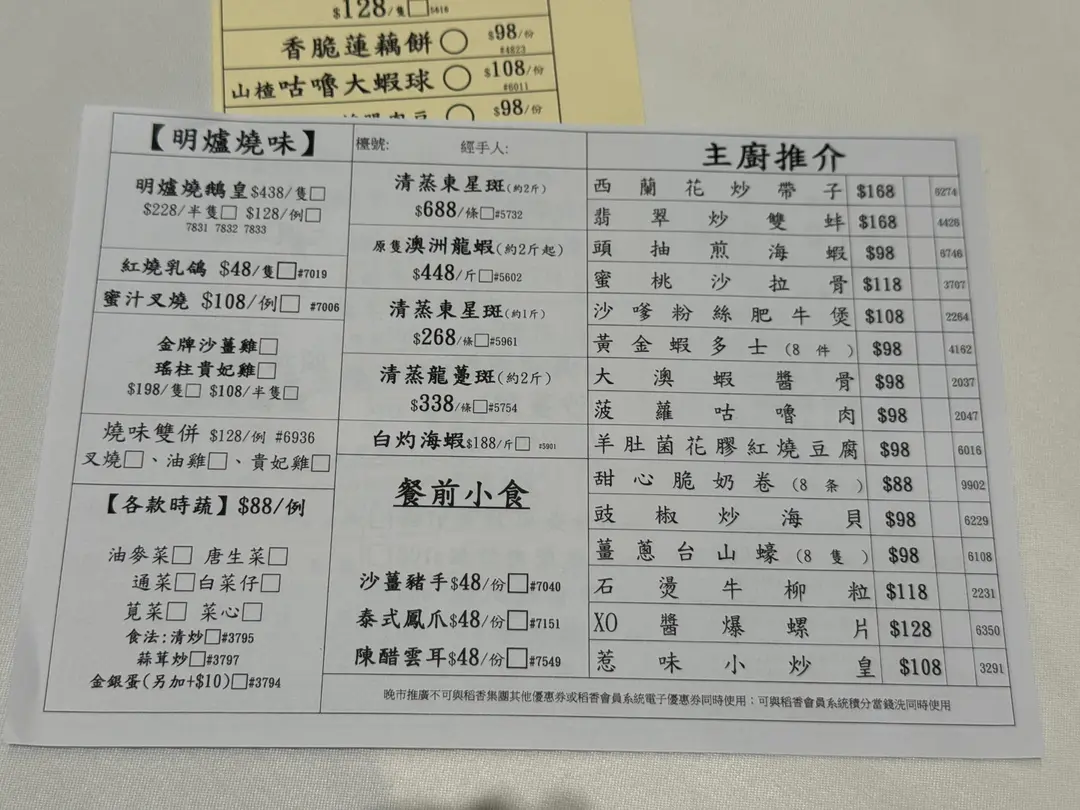 $128/隻 □ 5616
香脆蓮藕餅 ○ $98/份 #4823
山楂咕嚕大蝦球 ○ $108/份 #6011
$98/份
【明爐燒味】
明爐燒鵝皇 $438/隻□
$228/半隻□ $128/例□
7831 7832 7833
紅燒乳鴿 $48/隻□#7019
蜜汁叉燒 $108/例□ #7006
金牌沙薑雞□
瑤柱貴妃雞□
$198/隻□ $108/半隻□
燒味雙併 $128/例 #6936
叉燒□、油雞□、貴妃雞□
【各款時蔬】$88/例
油麥菜□ 唐生菜□
通菜□白菜仔□
莧菜□ 菜心□
食法:清炒□#3795
蒜茸炒□#3797
金銀蛋(另加+$10)□#3794
檯號: 經手人:
清蒸東星斑(約2斤)
$688/條□#5732
原隻澳洲龍蝦(約2斤起)
$448/斤□#5602
清蒸東星斑(約1斤)
$268/條□#5961
清蒸龍躉斑(約2斤)
$338/條□#5754
白灼海蝦$188/斤□ #5901
餐前小食
沙薑豬手$48/份□#7040
泰式鳳爪$48/份□#7151
陳醋雲耳$48/份□#7549
主廚推介
西蘭花炒帶子 $168 6274
翡翠炒雙蚌 $168 4426
頭抽煎海蝦 $98 6746
蜜桃沙拉骨 $118 3707
沙嗲粉絲肥牛煲 $108 2264
黃金蝦多士(8件) $98 4162
大澳蝦醬骨 $98 2037
菠蘿咕嚕肉 $98 2047
羊肚菌花膠紅燒豆腐 $98 6016
甜心脆奶卷(8条) $88 9902
豉椒炒海貝 $98 6229
薑蔥台山蠔(8隻) $98 6108
石燙牛柳粒 $118 2231
XO醬爆螺片 $128 6350
惹味小炒皇 $108 3291
晚市推廣不可與稻香集團其他優惠券或稻香會員系統電子優惠券同時使用；可與稻香會員系統積分當錢洗同時使用